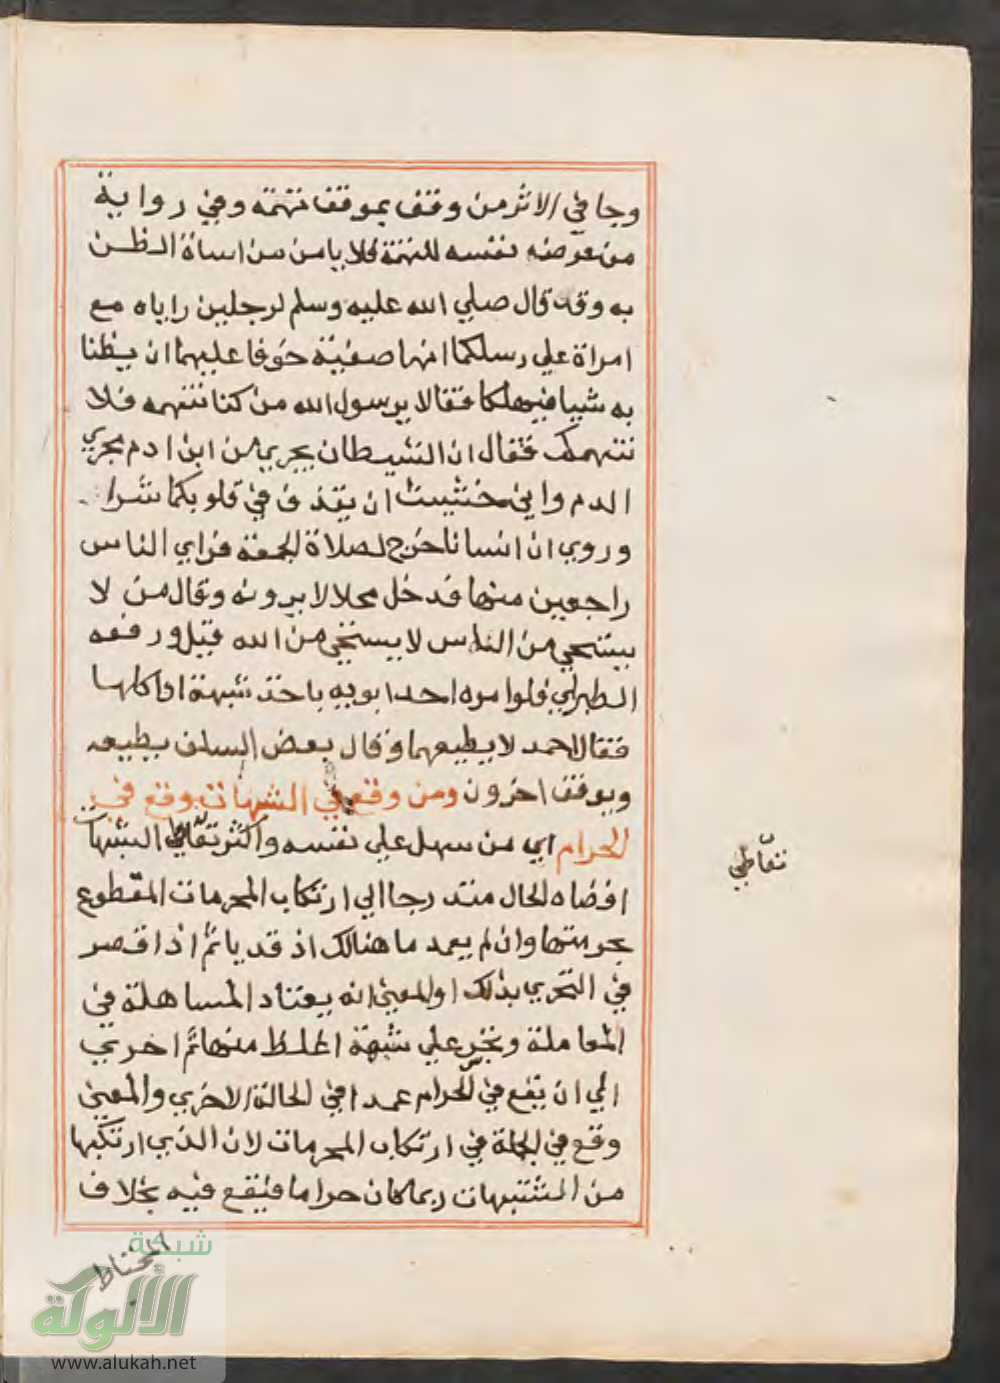 وجا في الاثر من وقف بموقف تهمة وفي رواية
من عرض نفسه للتهمة فلا يامن من اساة الظن
به وقد قال صلي الله عليه وسلم لرجلين راياه مع
امراة علي رسلكما انها صفية خوفا عليهما ان يظنا
به شييا فيهلكا فقالا يرسول الله من كنا نتهمه فلا
نتهمك فقال ان الشيطان يجري من ابن ادم مجري
الدم واني خشيت ان يقذف في قلوبكما شرا
وروي ان انسانا خرج لصلاة الجمعة فراي الناس
راجعين منها فدخل محلا لا يرونه وقال من لا
يستحي من الناس لا يستحي من الله قيل ورفعه
الطبراي فلوا مره احد ابويه باخذ شبهة او اكلها
فقال احمد لا يطيعهما وقال بعض السلف يطيعه
ويوقف اخرون ومن وقع في الشبهات وقع في
الحرام اي من سهل علي نفسه واكثر تعاطي الشبهات
افضاه الحال متدرجا الي ارتكاب المحرمات المقطوع
بحرمتها وان لم يعمد ما هنالك اذ قد ياثم اذا قصر
في التحري بذلك او المعني انه يعتاد المساهلة في
المعاملة وتجر علي شبهة اغلظ منها ثم اخري
الي ان يقع في الحرام عمدا في الحالة الاخري والمعني
وقع في الجملة في ارتكاب المحرمات لان الذي ارتكبها
من المشتبهات ربما كان حراما فيقع فيه بخلاف
تعاطي
المحتاط
شبكة
الألوكة
www.alukah.net